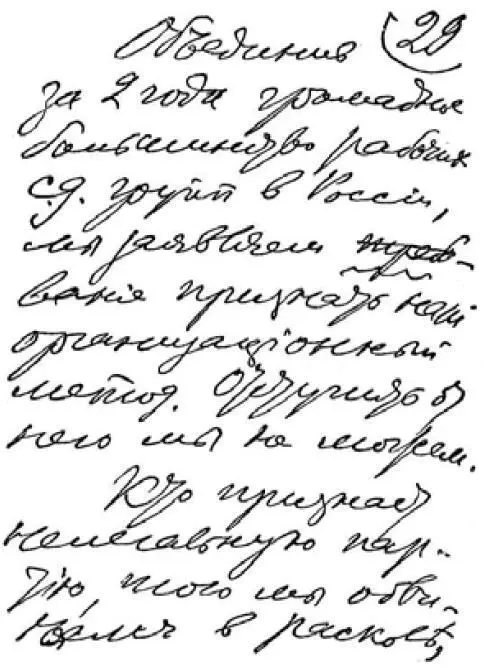 Объединив 29
за 2 года громадное
большинство рабочих
с.д. групп в Россіи,
мы заявляем требо-
ваніе признать наш
организаціонный
метод. Отступить от
него мы не можем.
Кто признает
нелегальную пар-
тію, того мы обви-
няли в расколѣ,